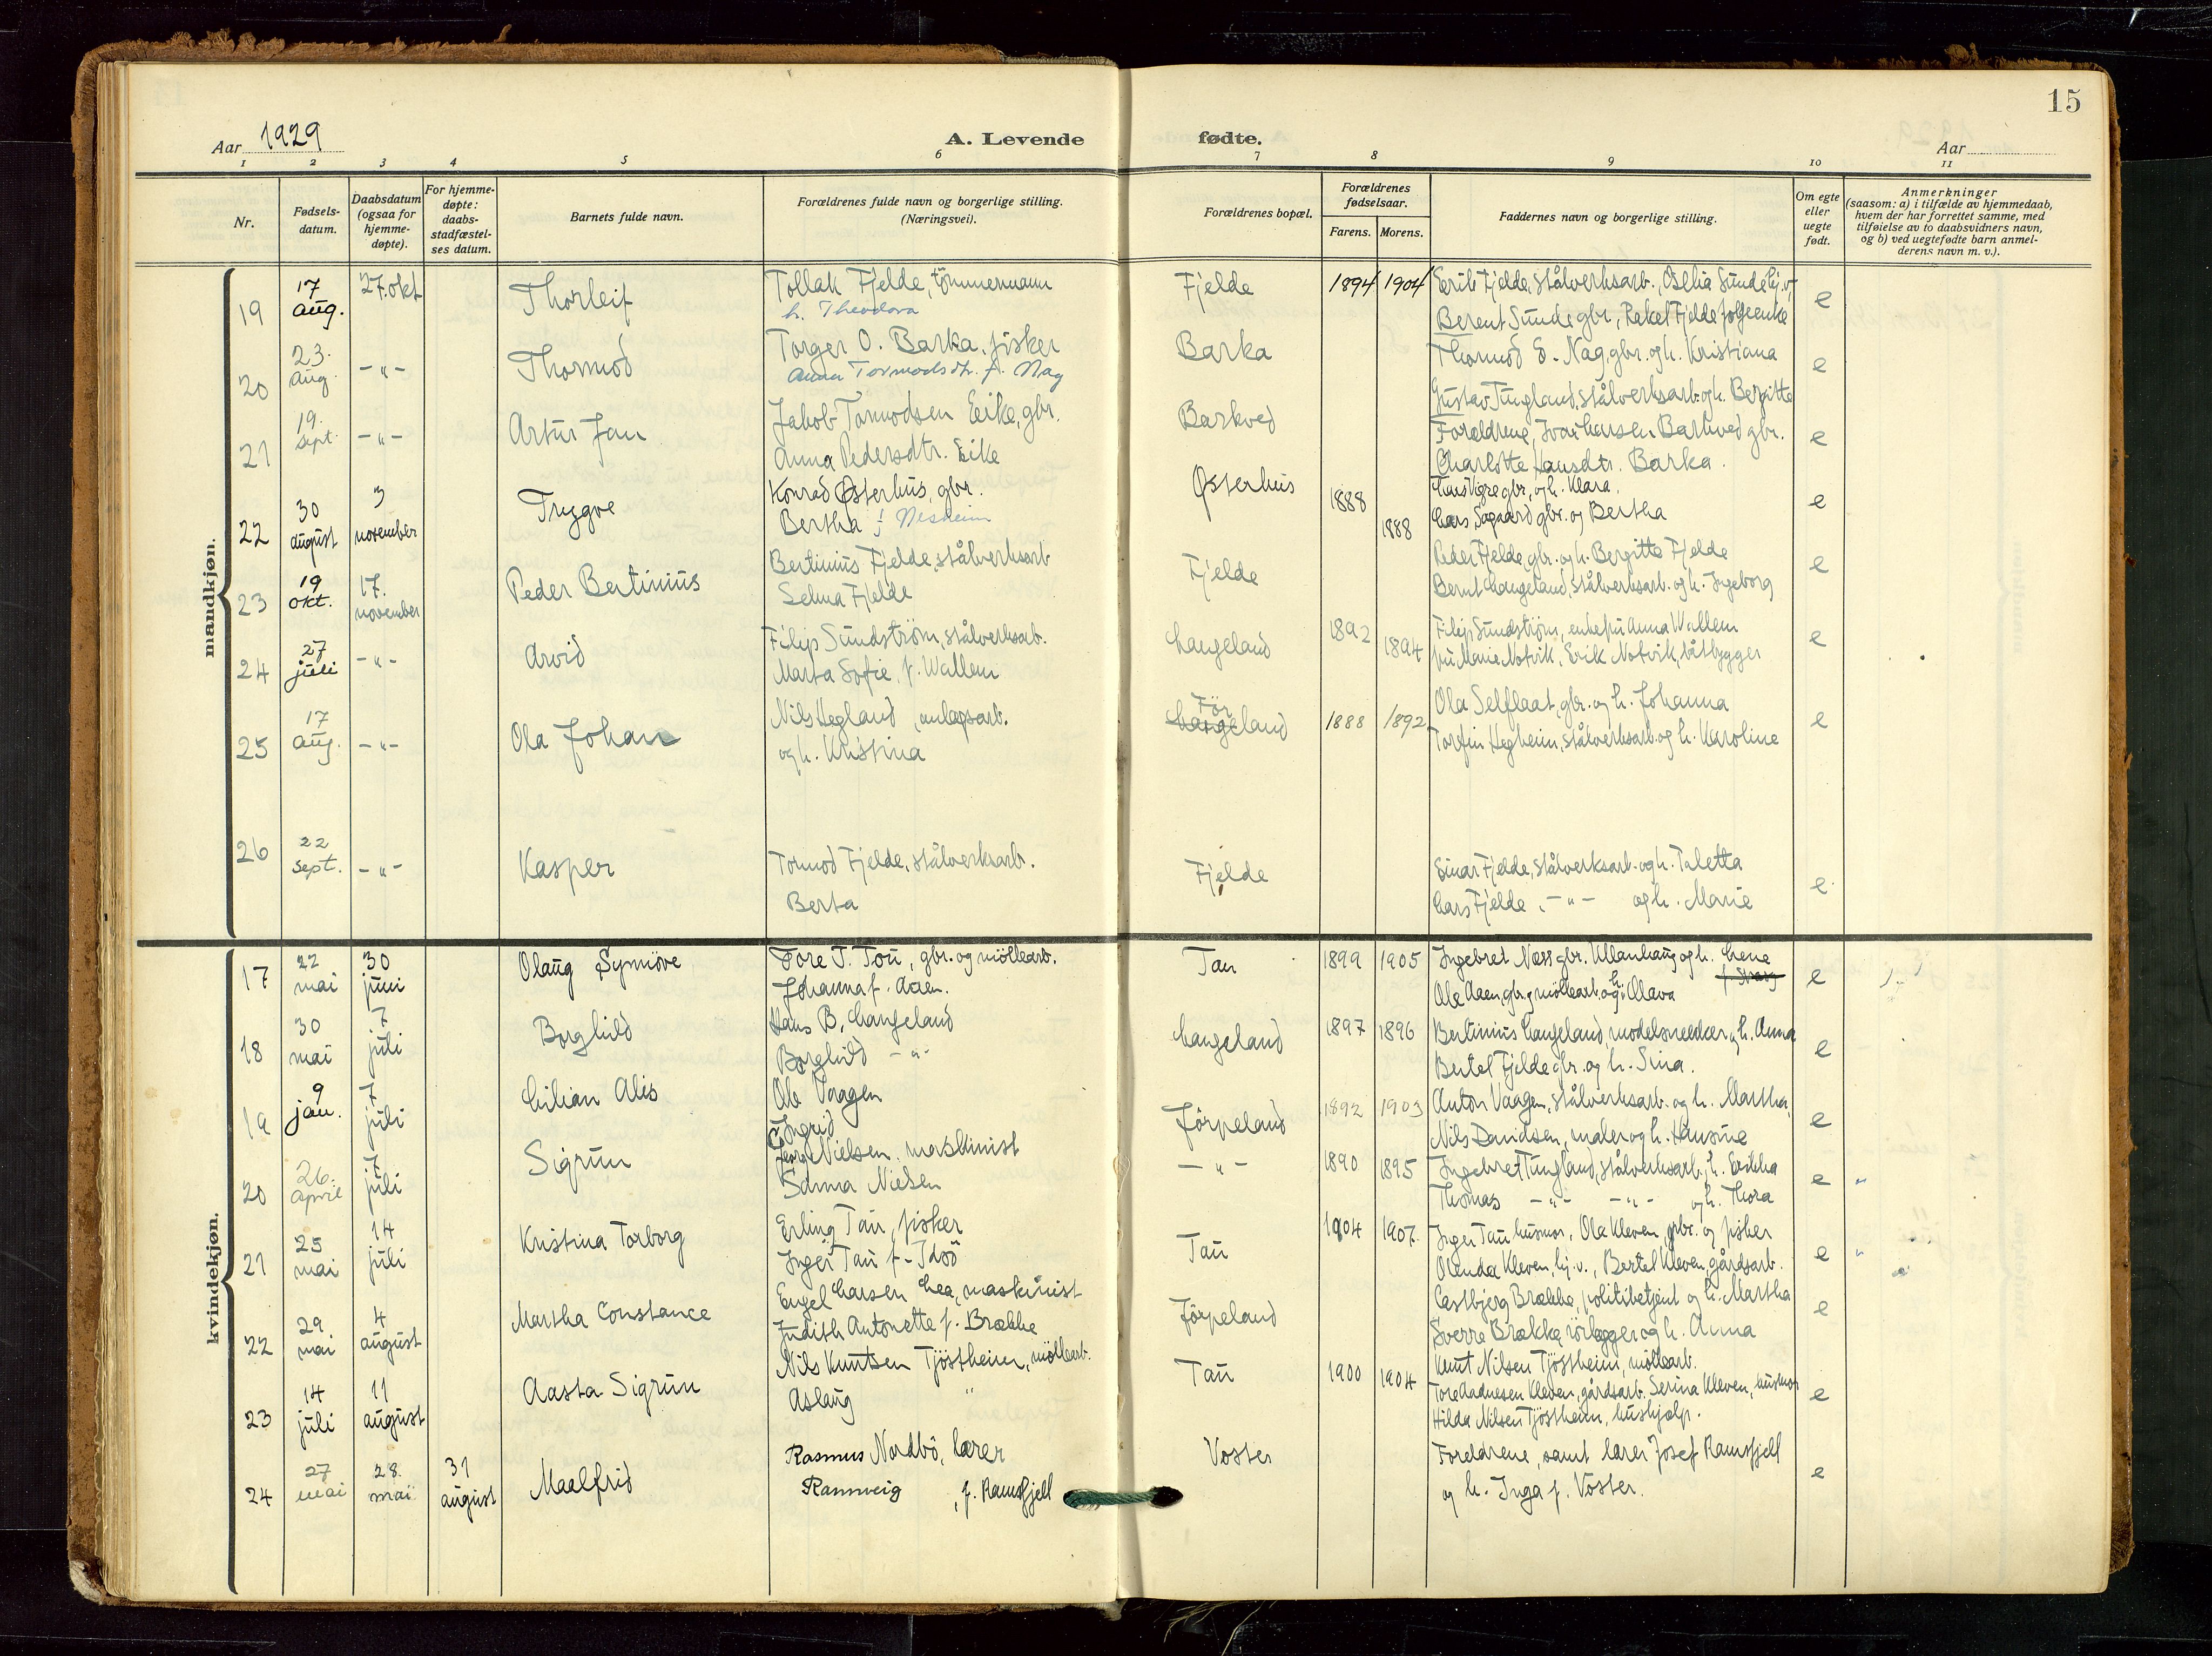 15
Aar 1929
A. Levende fødte.
Aar
1 2 3 4 5 6 7 8 9 10 11
Nr.
Fødsels-
datum.
Daabsdatum
(ogsaa for
hjemme-
døpte).
For hjemme-
døpte:
daabs-
stadfæstel-
ses datum.
Barnets fulde navn.
Forældrenes fulde navn og borgerlige stilling.
(Næringsvei).
Forældrenes bopæl.
Forældrenes
fødselsaar.
Farens. Morens.
Faddernes navn og borgerlige stilling.
Om egte
eller
uegte
født.
Anmerkninger
(saasom: a) i tilfælde av hjemmedaab,
hvem der har forrettet samme, med
tilføielse av to daabsvidners navn,
og b) ved uegtefødte barn anmel-
derens navn m. v.).
mandkjøn.
19 17 aug. 27. okt Thorleif Tollak Fjelde, tömmermann Fjelde 1894 1904 Fjelde, stålverksarb., Sunde hj. v.
h. Theodora Berent Sunde gbr., Rakel Fjelde e
20 23. aug. -"- Thormod Torger O. Barka, fisker Barka Thormod E. Nag, gbr. og h. Kristiana e
Anna Tormodsdtr. f. Nag Gustav Tungland, stålverksarb. og h. Bergitte
21 19. sept. -"- Artur Jan Jakob Tormodsen Eike, gbr. Barkved Foreldrene, Ivar Larsen Barkved gbr. e
Anna Pedersdtr. Eike Charlotte Hansdtr. Barka.
22 30 august 3 november Trygve Konrad Østerhus, gbr. Østerhus 1888 gbr. og h. Klara. e
Bertha f. Nesheim 1888 Lars Sagaard gbr. og Bertha
23 19 okt. 17. november Peder Bertinius Bertinius Fjelde, stålverksarb Fjelde Peder Fjelde, gbr. og h. Bergitte Fjelde e
Selma Fjelde Bernt Langeland, stålverksarb. og h. Ingeborg
24 27 juli -"- Arvid Filip Sundström, stålverksarb. Langeland 1892 1894 Filip Sundström, enkefru Anna Wallem e
Marta Sofie, f. Wallem fru Marie Notvik, Erik Notvik, båtbygger
25 17 aug. -"- Ola Johan Nils Hegland, anlegsarb. För Langeland 1888 1892 Ola Selflaat, gbr. og h. Johanna e
og h. Kristina Torfin Hegheim, stålverksarb. og h. Karoline
26 22 sept. -"- Kasper Tormod Fjelde, stålverksarb. Fjelde Einar Fjelde, stålverksarb. og h. Taletta e
Berta Lars Fjelde, -"- og h. Marie
kvindekjøn.
17 22 mai 30 juni Olaug Synnöve Tore T. Tou, gbr. og möllearb. Tau 1899 1905 Ingebret Næss gbr. Ullanhaug og h. Lene e
Johanna f. Aaen. Ole Aaen, gbr., möllearb. og h. Olava
18 30 mai 7 juli Borghild Hans B. Langeland Langeland 1897 1896 Bertinius Langeland, modelsnedker og h. Anna e
Borghild -"- Bertel Fjelde gbr. og h. Sina.
19 9 jan. 7 juli Lilian Alis Ole Vaagen Jörpeland 1892 1903 Anton Vaagen, stålverksarb. og h. Martha, e
Ingrid Nils Davidsen, maler og h. Hansine
20 26. april 7 juli Sigrun Georg Nielsen, maskinist -"- 1890 1895 Ingebret Tungland, stålverksarb., h. Erikka e "
Sanna Nielsen Thomas -"- -"- og h. Thora
21 25 mai 14 juli Kristina Torborg Erling Tau, fisker Tau 1904 1907. Inger Tau husmor, Ola Kleven, gbr. og fisker e "
Inger Tau f. Idsö Olenda Kleven, hj. v., Bertel Kleven, gårdsarb.
22 29 mai 4 august Martha Constance Engel Larsen Lea, maskinist Jörpeland Castbjerg Brække, politibetjent og h. Martha e
Judith Antonette f. Brække Sverre Brække, rörlegger og h. Anna
23 14 juli 11 august Aasta Sigrun Nils Knutsen Tjöstheim, möllearb. Tau 1900 1904 Knut Nilsen Tjöstheim, möllearb. e
Aslaug " Tore Aadnesen Kleven, gårdsarb. Serina Kleven, husmor
Hilda Nilsen Tjöstheim, hushjælp.
24 27 mai 28. mai 31 august Maalfrid Rasmus Nordbö, lærer Voster Foreldrene, samt lærer Josef Ramsfjell e
Rannveig, f. Ramsfjell og h. Inga f. Voster.